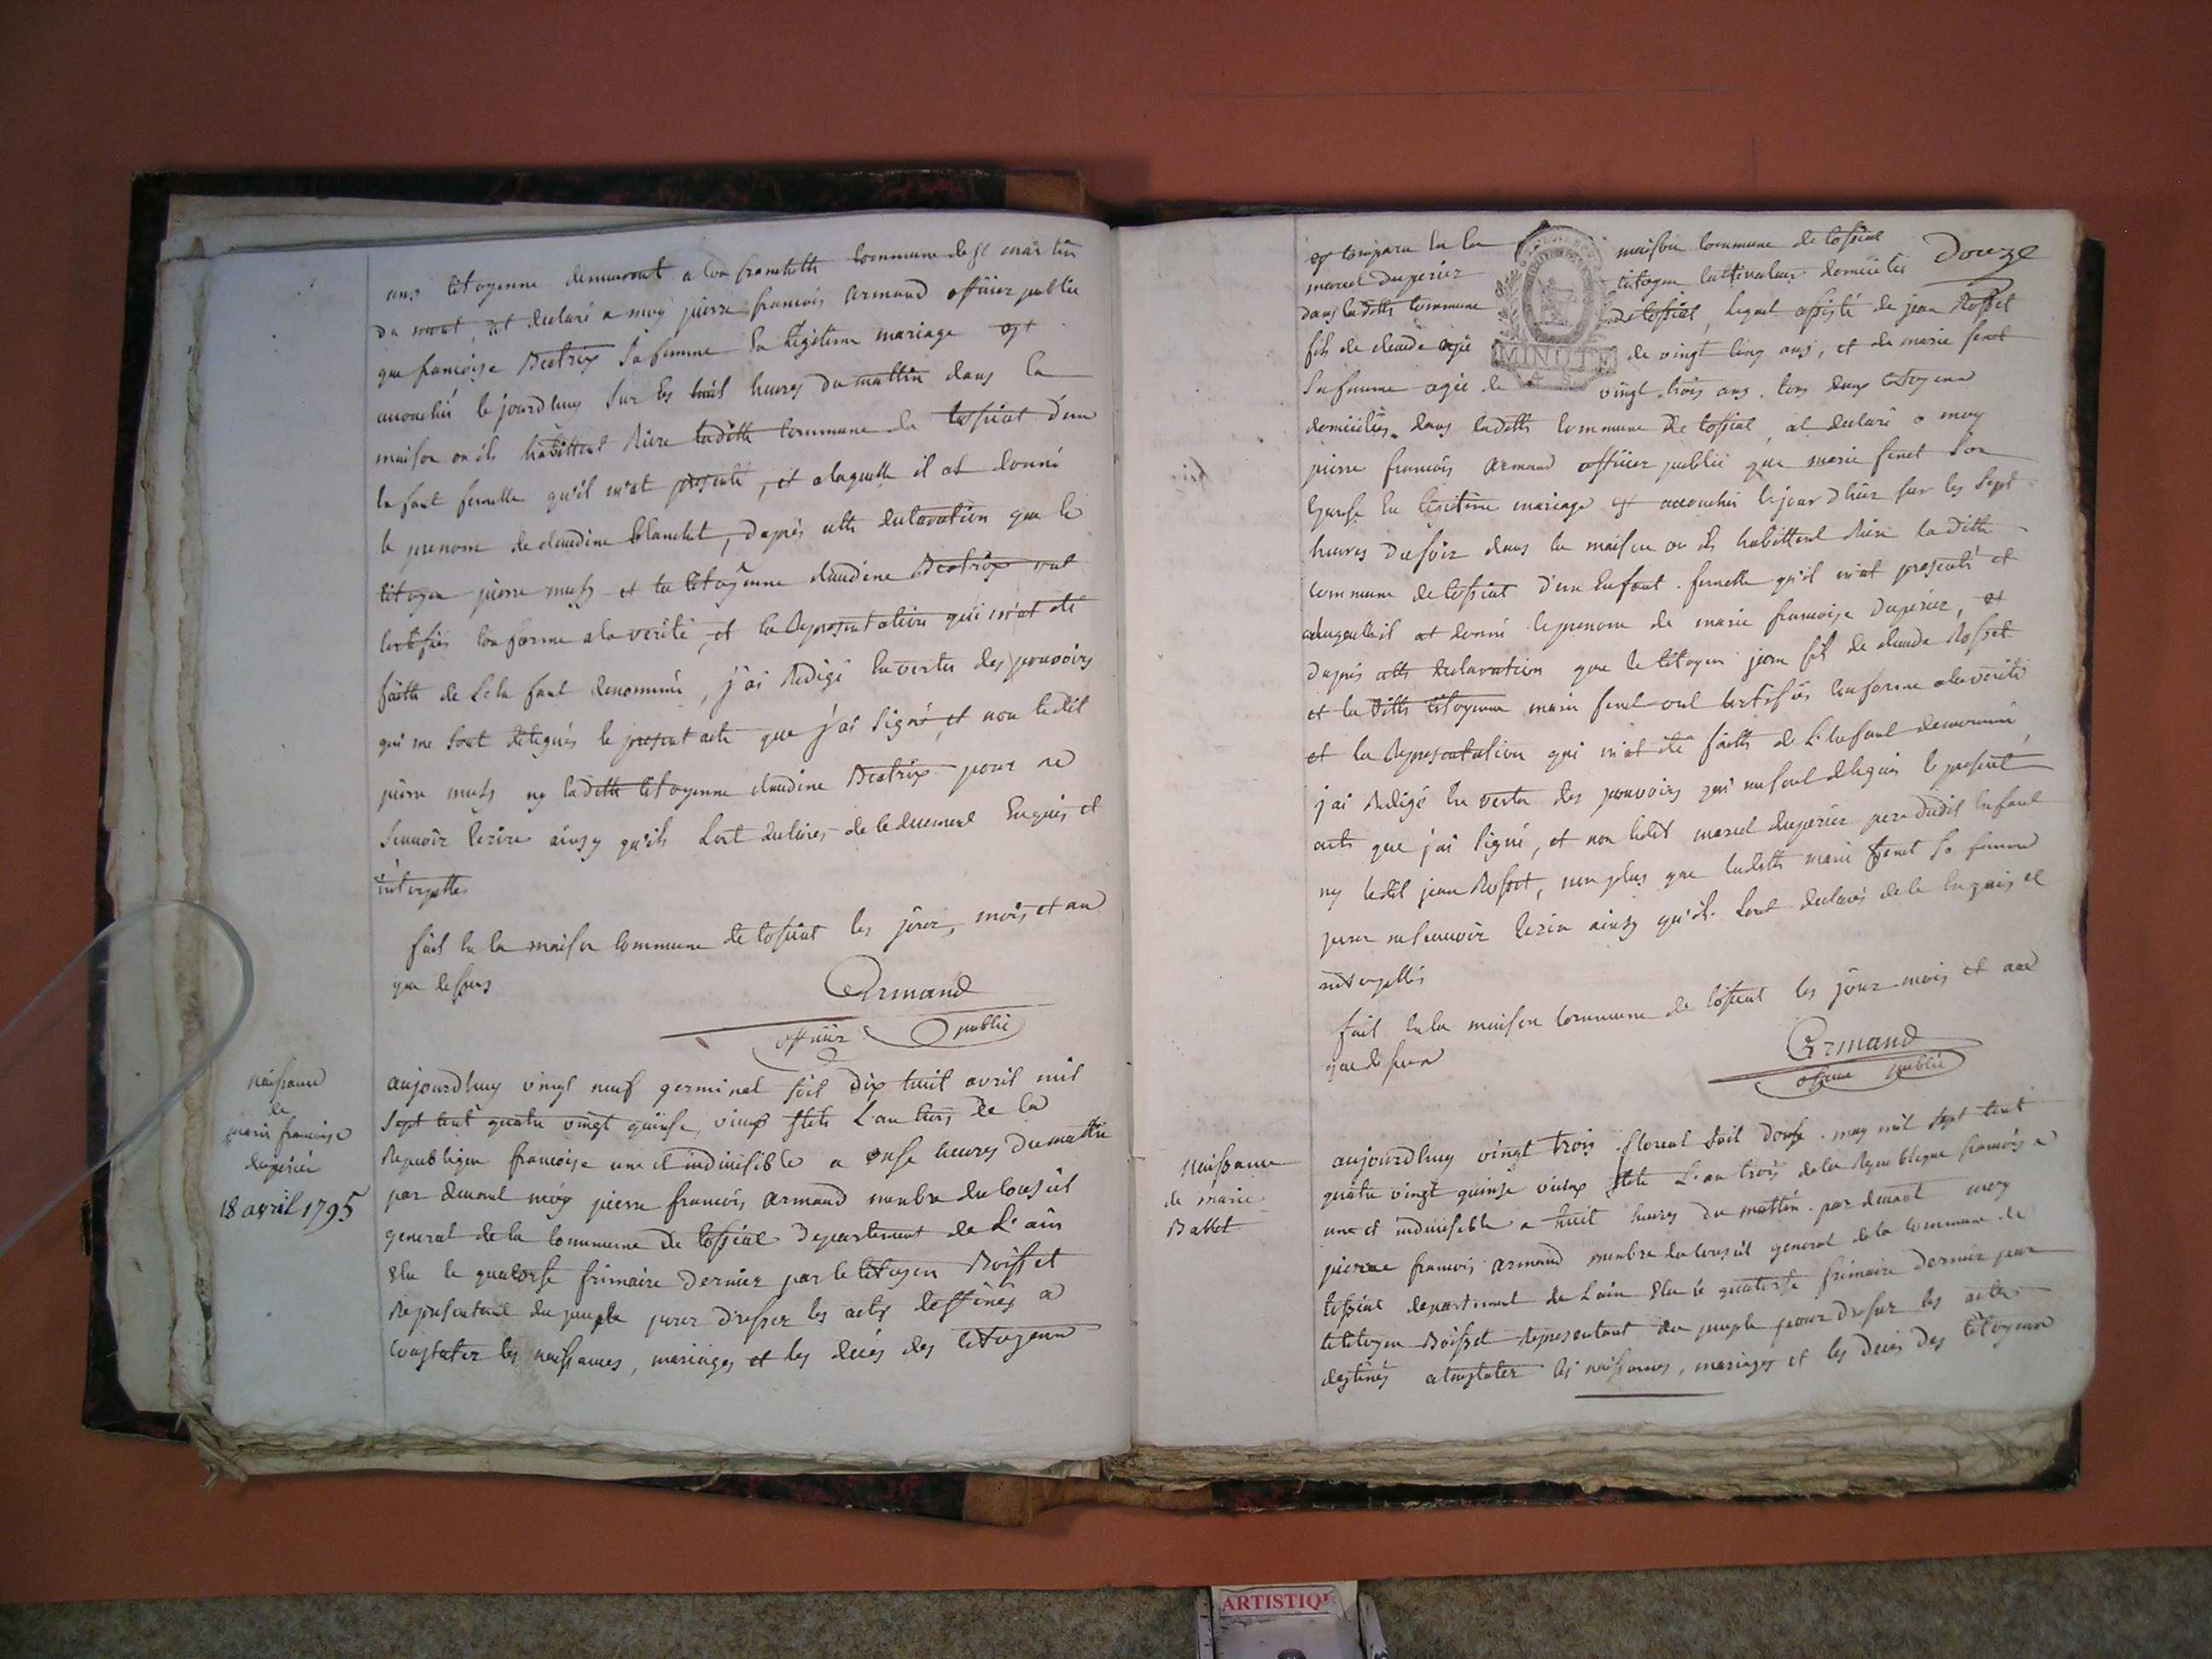 ans citoyenne demeurant a commune de st martin
du mont, at declaré a moy pierre francois armand officier public
que francoise Beatrix sa femme en legitime mariage est
accouchée le jourdhuy sur les huit heures du mattin dans la
maison ou ils habittent riere laditte commune de tossiat d'un
enfant femelle qu'il m'at presenté, et alaquelle il at donné
le prenom de claudine blanchet, d'aprés cette declaration que le
citoyen pierre et la citoyenne claudine Beatrix ont
certifiés conforme a la verité, et la representation qui m'at été
faitte de l'enfant denommé, j'ai redigé en vertu des pouvoirs
qui me sont delegués le present acte que j'ai signé, et non ledit
pierre ny laditte citoyenne claudine Beatrix pour ne
scauoir ecrire ainsy qu'ils l'ont declarés de ce duement enquis et
interpellés
fait en la maison commune de tossiat les jour, mois et an
que dessus
Armand
officier public
naissance
de
marie francoise
duperier
18 avril 1795
aujourdhuy vingt neuf germinal soit dix huit avril mil
sept cent quatre vingt quinse, vieux stile l'an trois de la
Republique francoise une et indiuisible a onse heures du mattin
par deuant moy pierre francois armand membre du conseil
general de la commune de tossiat departement de L'ain
elu le quatorse frimaire dernier par le citoyen Boisset
Representant du peuple pour dresser les actes destinés a
constater les naissances, mariages et les décés des citoyens
Douze
est comparu en la maison commune de tossiat
marcel duperier citoyen cultivateur domicilié
dans laditte commune de tossiat, lequel assisté de jean Rosset
MINUTE
fils de claude agé de vingt cinq ans, et de marie fenet
sa femme agée de vingt trois ans, tous deux citoyens
domiciliés dans laditte commune de tossiat, at declaré a moy
pierre francois armand officier public que marie fenet son
epouse en legitime mariage est accouchée le jour d'hier sur les sept
heures du soir dans la maison ou ils habittent riere laditte
commune de tossiat d'un enfant femelle qu'il m'at presenté et
alaquelle il at donné le prenom de marie francoise duperier, et
d'aprés cette declaration que le citoyen jean fils de claude Rosset
et la ditte citoyenne marie fenet ont certifiés conforme a la verité
et la representation qui m'at été faitte de l'enfant denommé,
j'ai redigé en vertu des pouvoirs qui me sont delegués le present
acte que j'ai signé, et non ledit marcel duperier pere dudit enfant
ny ledit jean Rosset, non plus que laditte marie fenet sa femme
pour ne scauoir ecrire ainsy qu'ils l'ont declarés de ce enquis et
interpellés
fait en la maison commune de tossiat les jour mois et an
que dessus
Armand
officier public
Naissance
de marie
Ballet
aujourdhuy vingt trois floreal soit douse may mil sept cent
quatre vingt quinse vieux stile L'an trois de la Republique francoise
une et indiuisible a huit heures du mattin par deuant moy
pierre francois armand membre du conseil general de la commune de
tossiat departement de L'ain elu le quatorse frimaire dernier par
le citoyen Boisset representant du peuple pour dresser les actes
destinés a constater les naissances, mariages et les décés des citoyens
ARTISTIQ